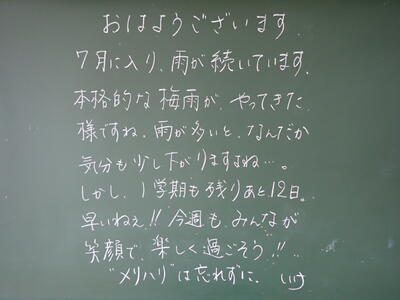 おはようございます
7月に入り、雨が続いています。
本格的な梅雨が、やってきた
様ですね。雨が多いと、なんだか
気分も少し下がりますよね…。
しかし、1学期も残りあと12日。
早いねぇ!! 今週も、みんなが
笑顔で、楽しく過ごそう!!
"メリハリ"は忘れずに。